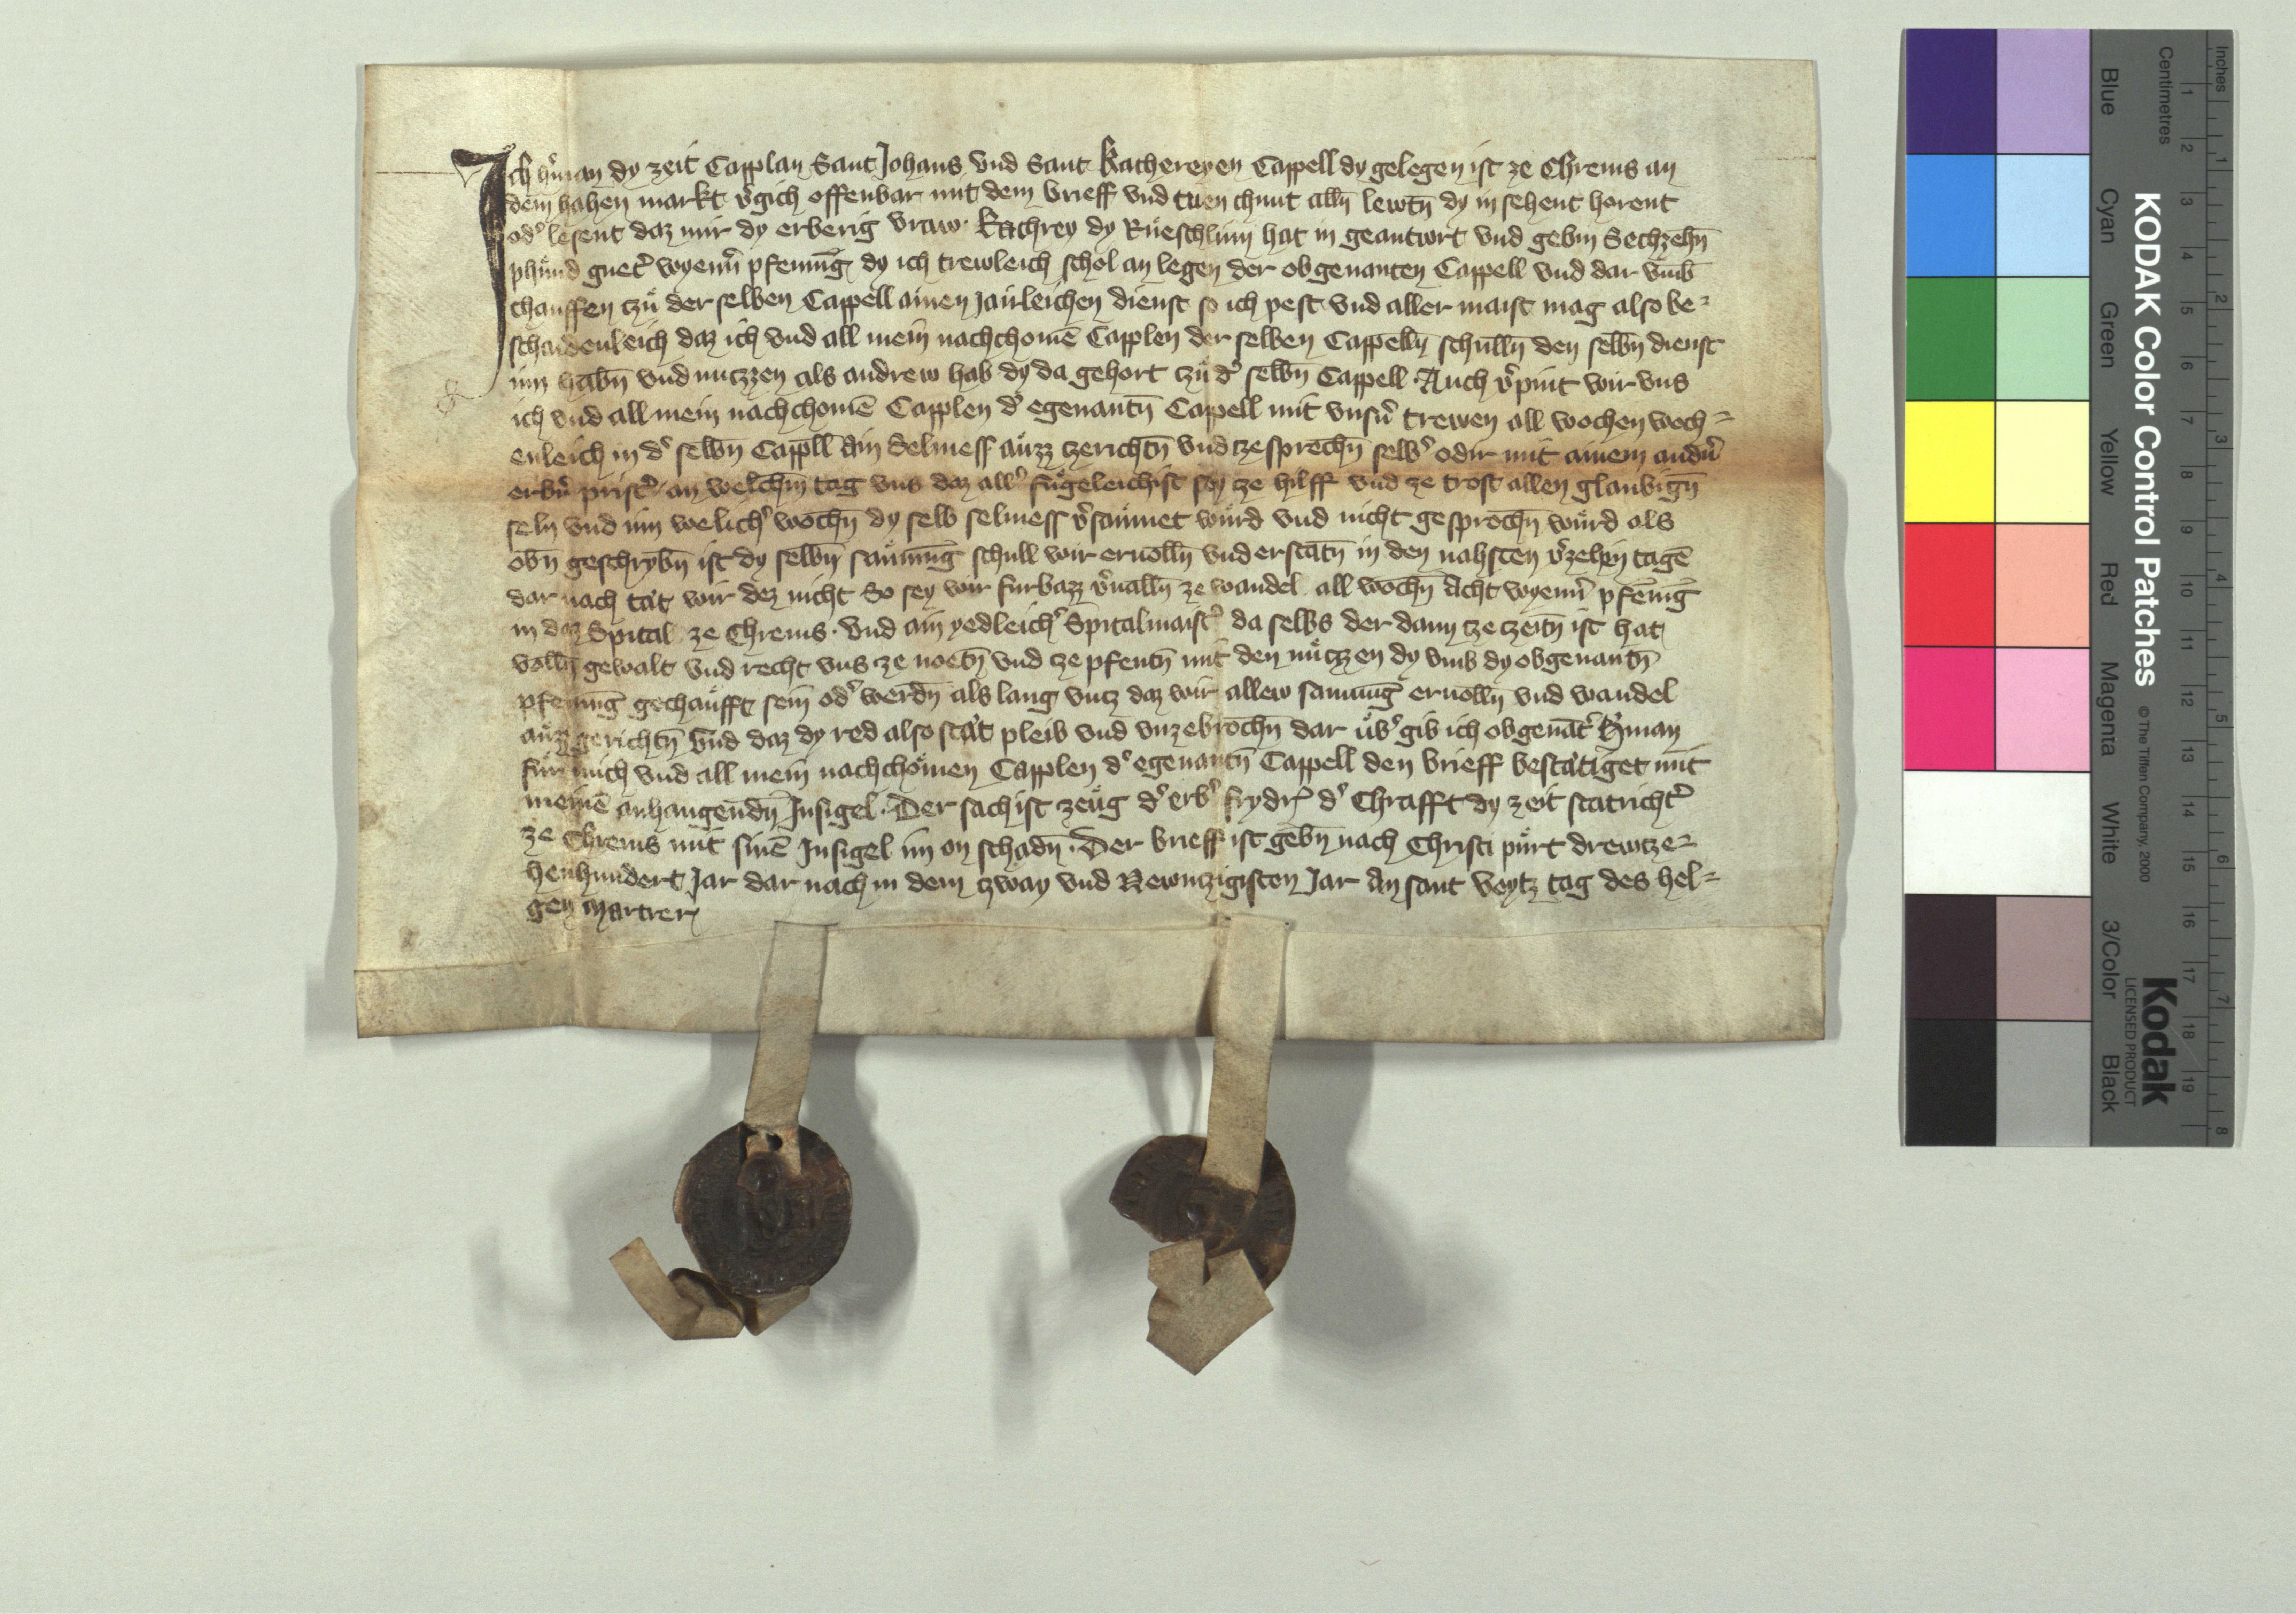 Ich h'man dy zeit Capplan Sant Johans vnd Sant Kathereyen Cappell dy gelegen ist ze Chrems an
dem hahen markt v'gich offenbar mit dem brieff vnd tuen chunt alln̄ lewtn̄ dy in sehent horent
od' lesent daz mir dy erberig vraw Kathrey dy Rueschlinn hat in geantwort vnd gebm̄ Sechzehn̄
phůnd guet' wyenn' pfenning dy ich trewleich schol an legen der obgenanten Cappell vnd dar vmb
chauffen czů der selben Cappell ainen Jarleichen dienst so ich pest vnd aller maist mag also be=
schaidenleich daz ich vnd all mein nachchomē Capplen der selben Cappelln̄ schulln̄ den selbn̄ dienst
inn habn̄ vnd nuczzen als andrew hab dy da gehort czů d' selbn̄ Cappell · Auch v'pint wir vns
ich vnd all mein nachchomē Capplen d' egenantn̄ Cappell mit vnsn' trewen all wochen woch=
enleich in d' selbn̄ Cappll ain Selmess aůzz czerichtn̄ vnd czesprechn̄ selb' odir mit ainem andn'
erbn' prist' an welchm̄ tag vns daz all' fůgeleichist sey ze hilff vnd ze trost allen glaubign̄
seln vnd inn welich' wochn̄ dy selb selmess v'saůmet wůrd vnd nicht gesprochn̄ wůrd als
obn̄ geschrybn̄ ist dy selbn̄ saůmung schull wir eruolln̄ vnd erstatn̄ in den nahsten v'zehen tagē
dar nach tåt wir dez nicht So sey wir furbazz v'ualln̄ ze wandel all wochn̄ Acht wyenn' pfenig
in daz Spital ze Chrems · vnd ain yedleich' Spitalmaist' da selbs der dann cze czeitn̄ ist hat
volln̄ gewalt vnd recht vns ze noetn̄ vnd cze pfentn̄ mit den nůczzen dy vmb dy obgenantn̄
pfening gechaůfft sein od' werdn̄ als lang vncz daz wir allew saumung eruolln̄ vnd wandel
aůzz gerichtn̄ vnd daz dy red also ståt pleib vnd vnzebrochn̄ dar ůb' gib ich obgenāt' H'man
fur mich vnd all mein nachchomen Capplen d' egenantn̄ Cappell den brieff beståtiget mit
meinē anhangendn̄ Insigel · Der sach ist zeůg d' erb' frydr' d' Chrafft dy zeit statricht'
ze Chrems mit sinē Insigel im on schadn̄ · Der brieff ist gebn̄ nach Christi půrt drewcze=
henhundert Jar dar nach in dem czway vnd Newnczigisten Jar An sant veytz tag des hel=
gen Martrer
KODAK Color Control Patches © The Tiffen Company, 2000
Kodak
LICENSED PRODUCT
Blue Cyan Green Yellow Red Magenta White 3/Color Black
Inches 1 2 3 4 5 6 7 8
Centimetres 1 2 3 4 5 6 7 8 9 10 11 12 13 14 15 16 17 18 19